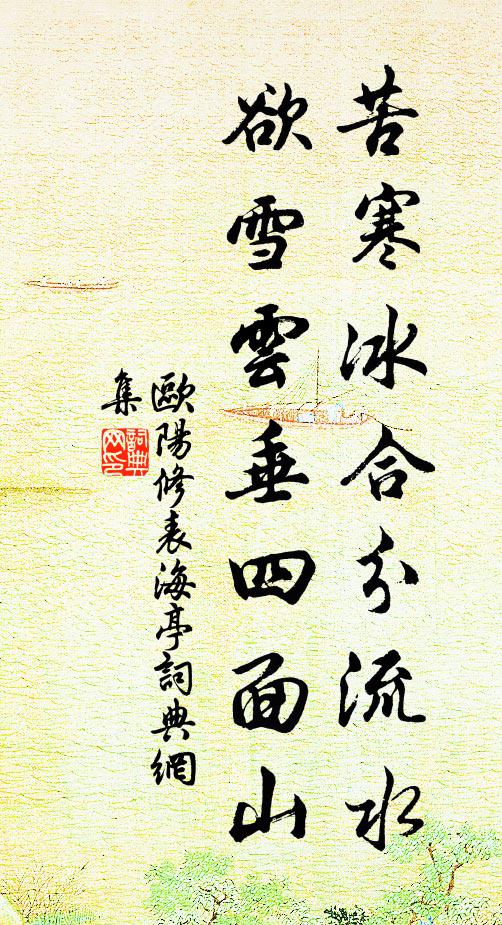 苦寒冰合分流水
欲雪雲垂四面山
歐陽修表海亭詞典網
集
詞典
网印